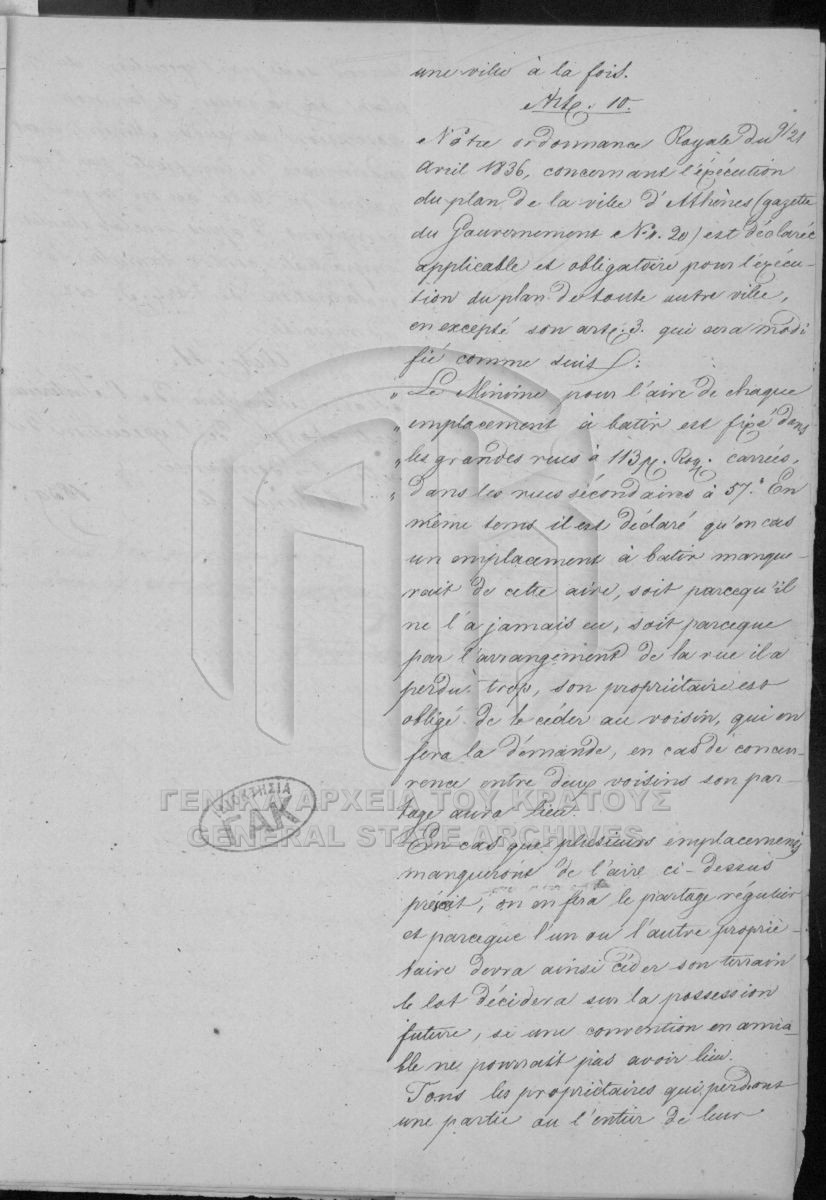 une ville à la fois.
Art. 10.
Nôtre ordonnance Royale du 9/21
Avril 1836, concernant l'éxécution
du plan de la ville d'Athènes (gazette
du Gouvernement No. 20) est déclarée
applicable et obligatoire pour l'exécu-
tion du plan de toute autre ville,
en excepté son art. 3. qui sera modi
fié comme suit:
„ Le Minime, pour l'aire de chaque
„ emplacement à batir est fixé dans
„ les grandes rues à 113 p. Roy. carrés,
„ dans les rues sécondaires à 57." En
même tems il est déclaré qu'en cas
un emplacement à batir manque-
rait de cette aire, soit parcequ'il
ne l'a jamais eu, soit parceque
par l'arrangement de la rue il a
perdu trop, son propriétaire est
obligé de le céder au voisin, qui en
fera la démande, en cas de concur-
rence entre deux voisins son par-
tage aura lieu.
En cas que plusieurs emplacemens
manqueront de l'aire ci-dessus
précit, on en fera le partage régulier
et parceque l'un ou l'autre proprié-
taire devra ainsi céder son terrain
le lot décidera sur la possession
future, si une convention en amia-
ble ne pourrait pas avoir lieu.
Tous les propriétaires qui perdront
une partie ou l'entier de leur
ΙΔΙΟΚΤΗΣΙΑ
ΓΑΚ
ΓΕΝΙΚΑ ΑΡΧΕΙΑ ΤΟΥ ΚΡΑΤΟΥΣ
GENERAL STATE ARCHIVES